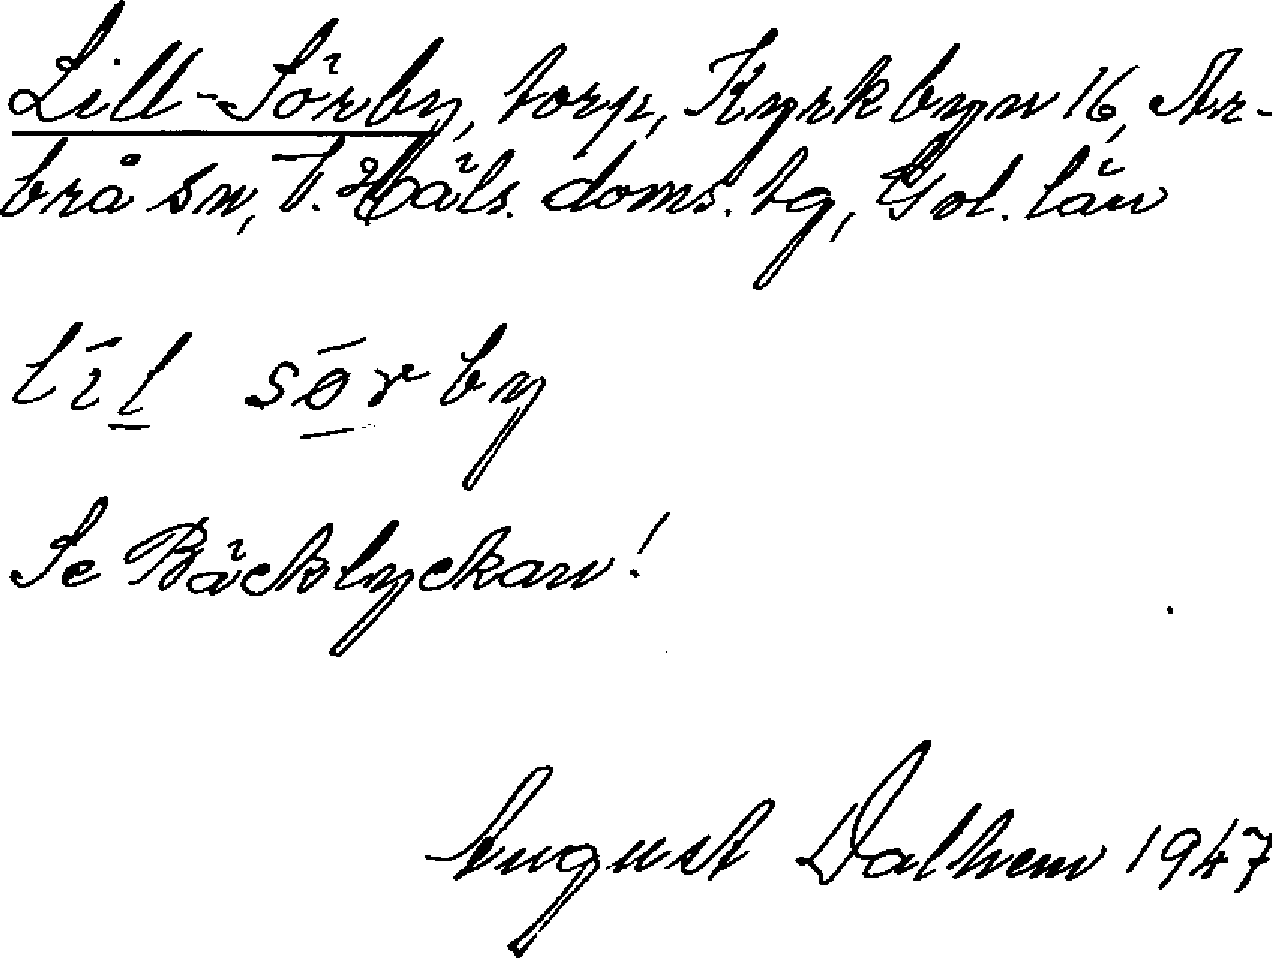 Lill-Sörby, torp, Kyrkbyn 16, Ar-
brå sn, V. Häls. doms. tg, Gvl. län
līl sōrby
Se Bäcklyckan!
August Dalhem 1947